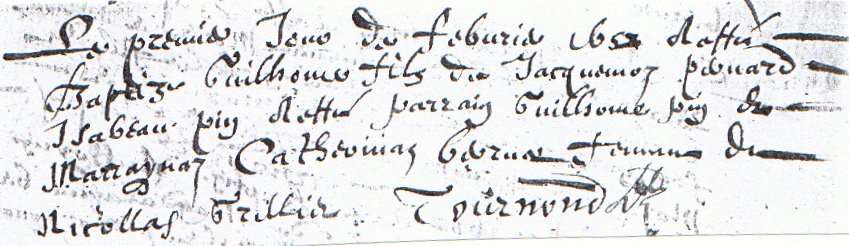 Le premie Jour de febvrie 1652 a esté
Baptize Guilhome filz de Jacquemoz
Isabeau pin a esté parrain Guilhome pin de
Marraynaz Catherinaz femme de
Nicollas Grillie Tournond